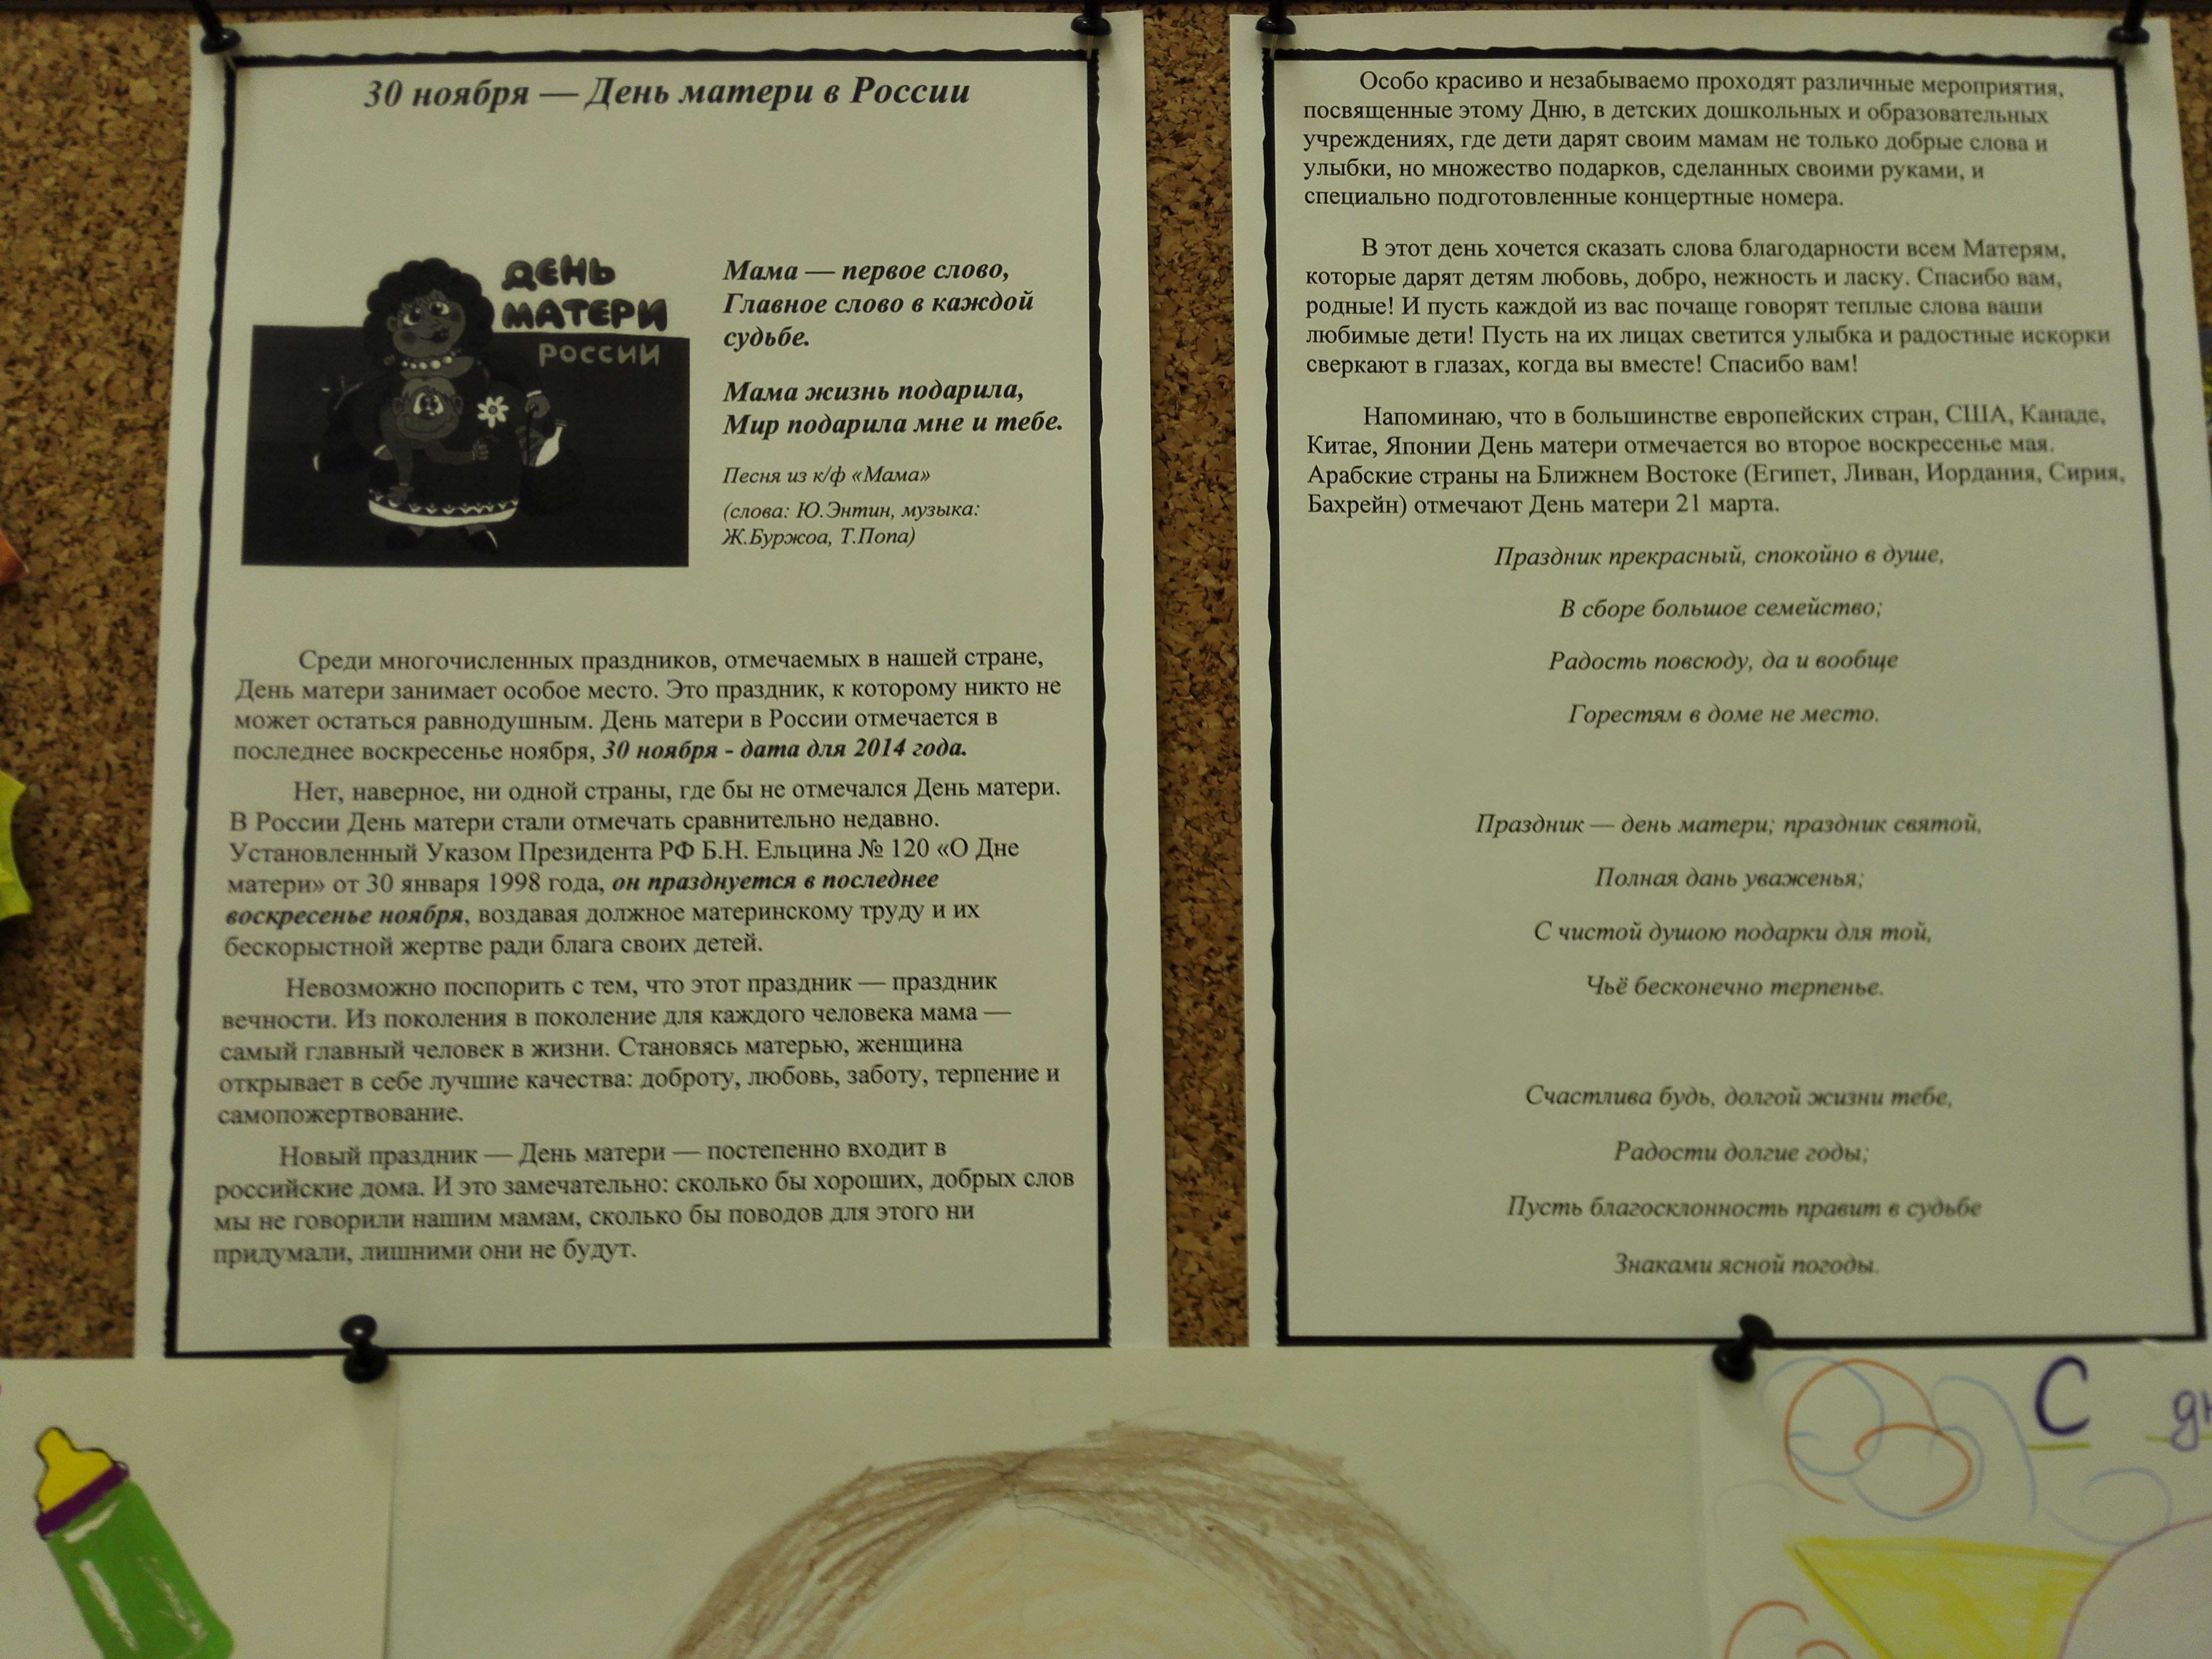 30 ноября — День матери в России
ДЕНЬ
МАТЕРИ
РОССИИ
Мама — первое слово,
Главное слово в каждой
судьбе.
Мама жизнь подарила,
Мир подарила мне и тебе.
Песня из к/ф «Мама»
(слова: Ю.Энтин, музыка:
Ж.Буржоа, Т.Попа)
Среди многочисленных праздников, отмечаемых в нашей стране,
День матери занимает особое место. Это праздник, к которому никто не
может остаться равнодушным. День матери в России отмечается в
последнее воскресенье ноября, 30 ноября - дата для 2014 года.
Нет, наверное, ни одной страны, где бы не отмечался День матери.
В России День матери стали отмечать сравнительно недавно.
Установленный Указом Президента РФ Б.Н. Ельцина № 120 «О Дне
матери» от 30 января 1998 года, он празднуется в последнее
воскресенье ноября, воздавая должное материнскому труду и их
бескорыстной жертве ради блага своих детей.
Невозможно поспорить с тем, что этот праздник — праздник
вечности. Из поколения в поколение для каждого человека мама —
самый главный человек в жизни. Становясь матерью, женщина
открывает в себе лучшие качества: доброту, любовь, заботу, терпение и
самопожертвование.
Новый праздник — День матери — постепенно входит в
российские дома. И это замечательно: сколько бы хороших, добрых слов
мы не говорили нашим мамам, сколько бы поводов для этого ни
придумали, лишними они не будут.
Особо красиво и незабываемо проходят различные мероприятия,
посвященные этому Дню, в детских дошкольных и образовательных
учреждениях, где дети дарят своим мамам не только добрые слова и
улыбки, но множество подарков, сделанных своими руками, и
специально подготовленные концертные номера.
В этот день хочется сказать слова благодарности всем Матерям,
которые дарят детям любовь, добро, нежность и ласку. Спасибо вам,
родные! И пусть каждой из вас почаще говорят теплые слова ваши
любимые дети! Пусть на их лицах светится улыбка и радостные искорки
сверкают в глазах, когда вы вместе! Спасибо вам!
Напоминаю, что в большинстве европейских стран, США, Канаде,
Китае, Японии День матери отмечается во второе воскресенье мая.
Арабские страны на Ближнем Востоке (Египет, Ливан, Иордания, Сирия,
Бахрейн) отмечают День матери 21 марта.
Праздник прекрасный, спокойно в душе,
В сборе большое семейство;
Радость повсюду, да и вообще
Горестям в доме не место.
Праздник — день матери; праздник святой,
Полная дань уваженья;
С чистой душою подарки для той,
Чьё бесконечно терпенье.
Счастлива будь, долгой жизни тебе,
Радости долгие годы;
Пусть благосклонность правит в судьбе
Знаками ясной погоды.
С